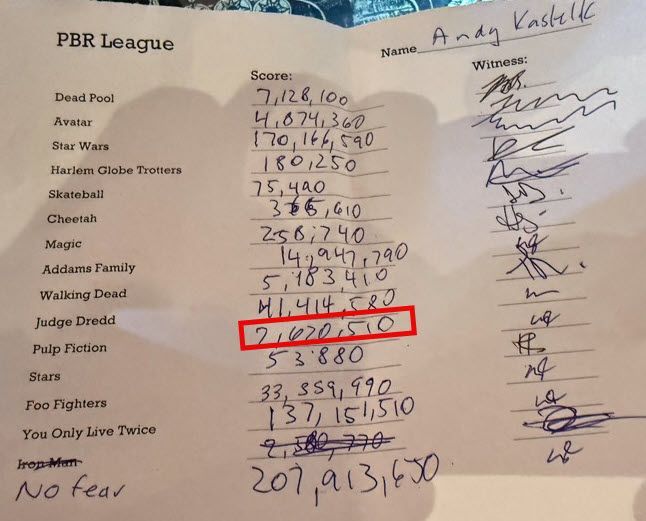 PBR League
Name Andy Kastelic
Score: Witness:
Dead Pool 7,128,100
Avatar 4,874,360
Star Wars 170,166,590
Harlem Globe Trotters 180,250
Skateball 75,490
Cheetah
Magic 258,740
Addams Family 14,947,790
Walking Dead 5,183,410
Judge Dredd 41,414,580
Pulp Fiction
Stars 53,880
Foo Fighters 33,359,990
You Only Live Twice 137,151,510
Iron Man
No fear 207,913,650